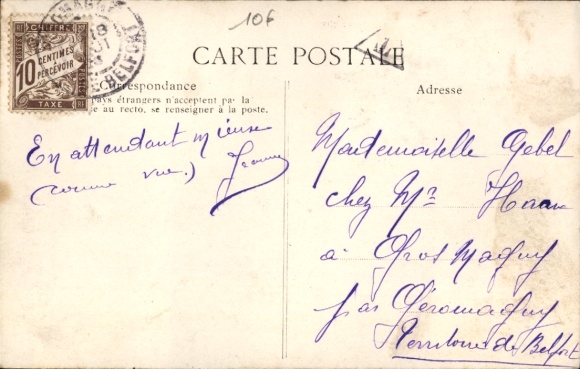 10F
CARTE POSTALE
T
CHIFFRE
10 CENTIMES
À PERCEVOIR
TAXE
BELFORT
Correspondance
pays étrangers n'acceptent pas la
au recto, se renseigner à la poste.
Adresse
En attendant mieux
(comme vue.) Jeanne
Mademoiselle Gebel
chez Mr
à Gros Magny
par Giromagny
Territoire de Belfort